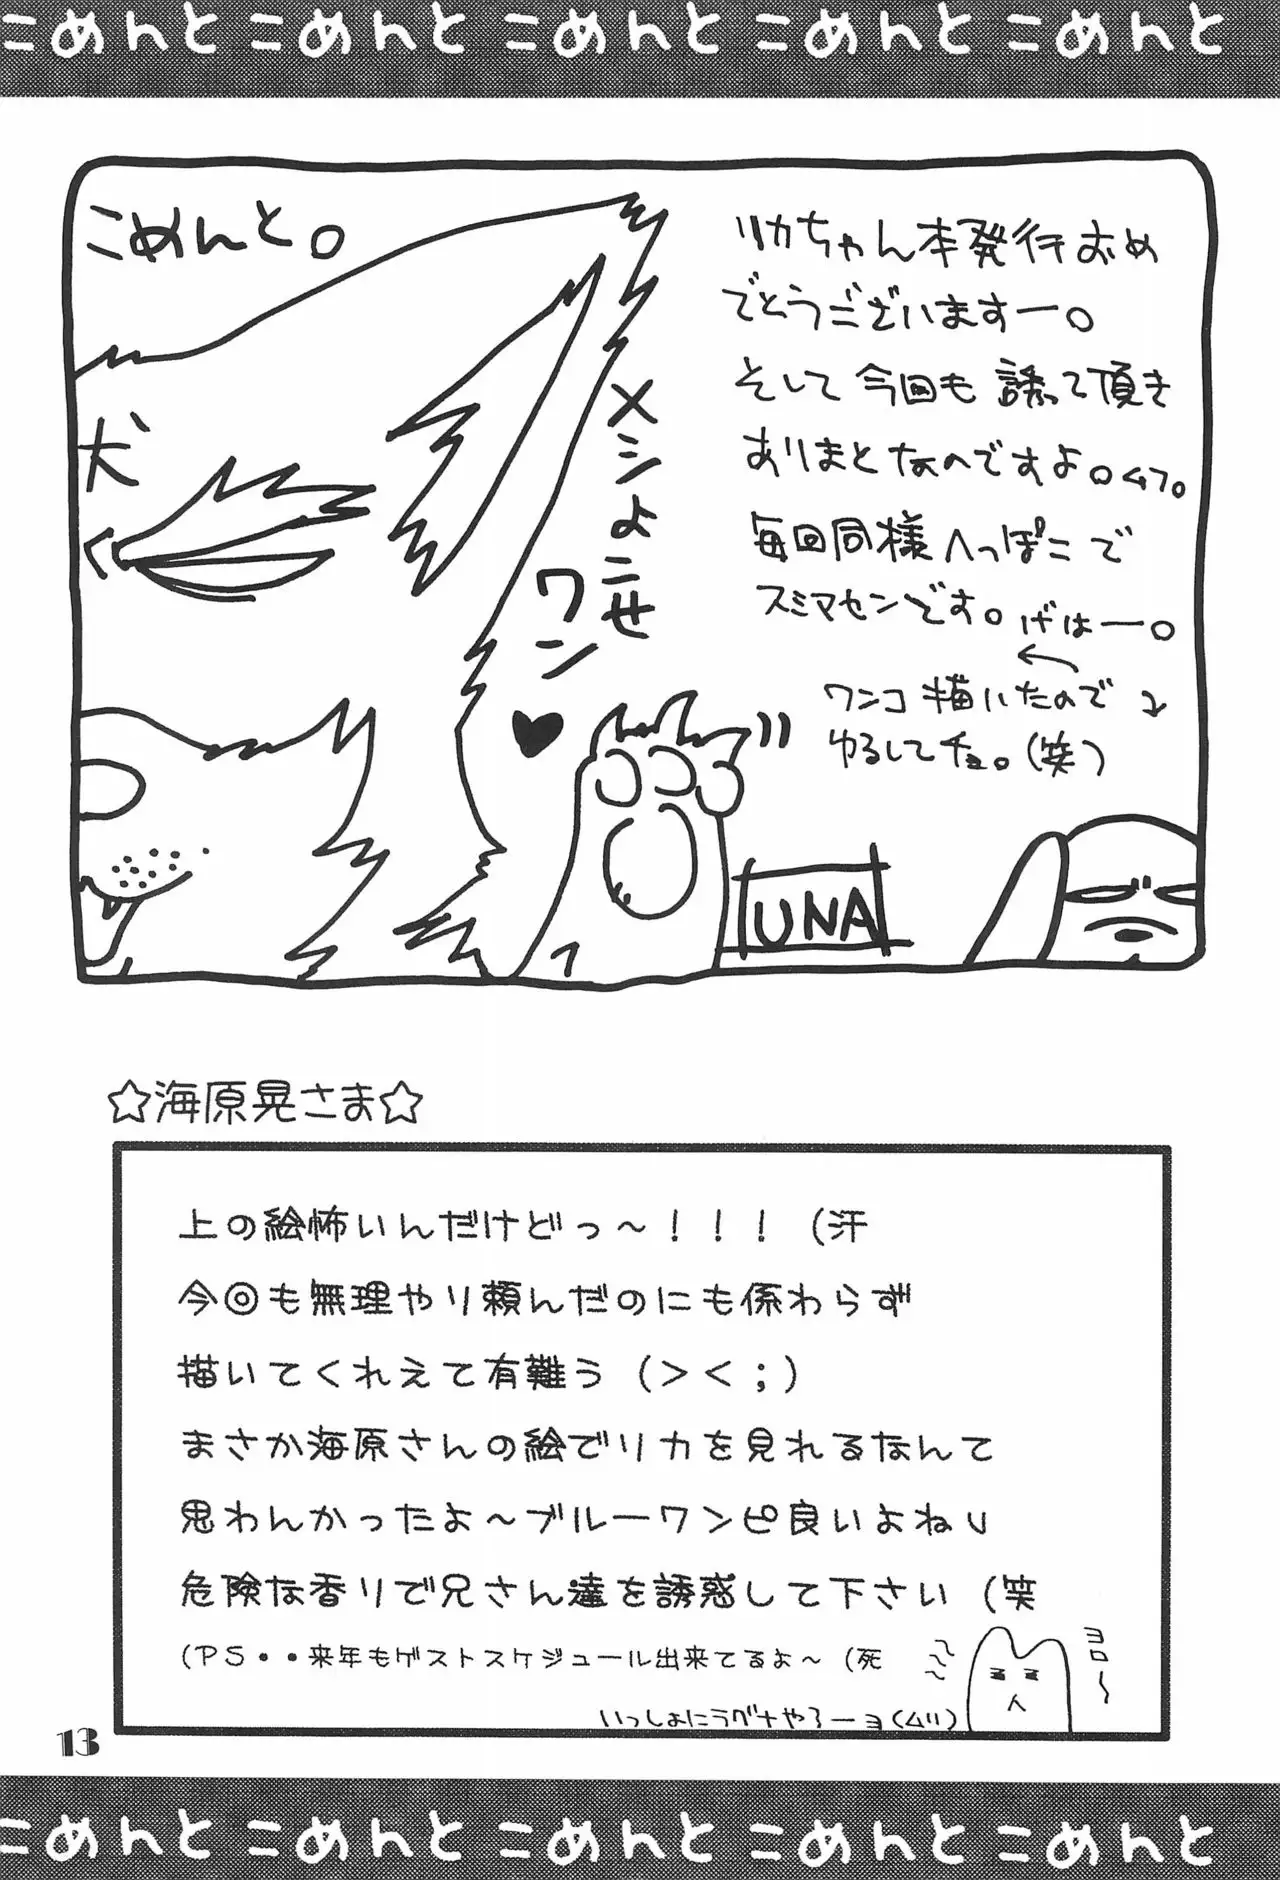 こめんと こめんと こめんと こめんと こめんと
こめんと。
リカちゃん本発行おめ
でとうございますー。
そして今回も誘って頂き
ありまとなのですよ。ムフ。
毎回同様へっぽこで
スミマセンです。げはー。
ワンコ描いたので
ゆるしてチョ。(笑)
メシよこせ
ワン
犬
UNA
☆海原晃さま☆
上の絵怖いんだけどっ～！！！(汗
今回も無理やり頼んだのにも係わらず
描いてくれえて有難う(＞＜；)
まさか海原さんの絵でリカを見れるなんて
思わんかったよ～ブルーワンピ良いよね
危険な香りで兄さん達を誘惑して下さい(笑
(PS・・来年もゲストスケジュール出来てるよ～(死
いっしょにラグナやろーヨ(ムリ)
ヨロ～
13
こめんと こめんと こめんと こめんと こめんと